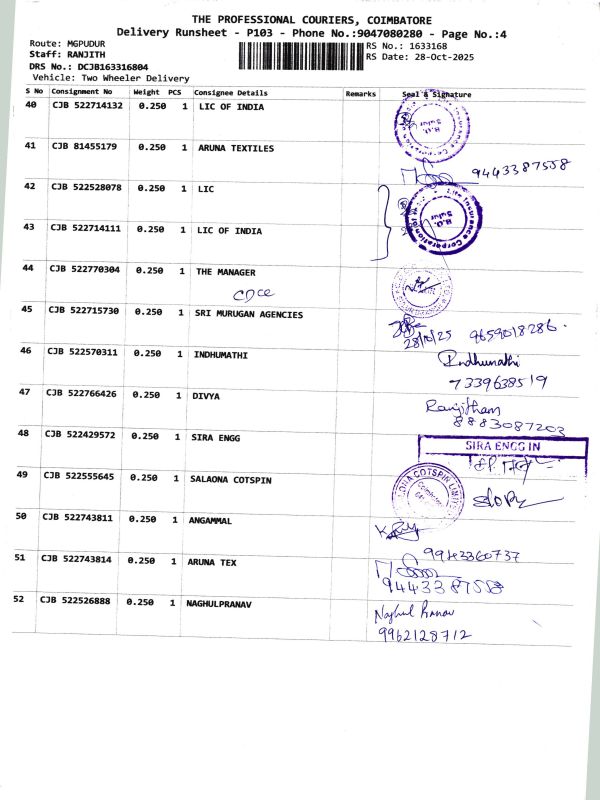 THE PROFESSIONAL COURIERS, COIMBATORE
Delivery Runsheet - P103 - Phone No.:9047080280 - Page No.:4
Route: MGPUDUR
Staff: RANJITH
DRS No.: DCJB163316804
Vehicle: Two Wheeler Delivery
RS No.: 1633168
RS Date: 28-Oct-2025
S No Consignment No Weight PCS Consignee Details Remarks Seal & Signature
40 CJB 522714132 0.250 1 LIC OF INDIA
41 CJB 81455179 0.250 1 ARUNA TEXTILES
9443387558
42 CJB 522528078 0.250 1 LIC
Life Insurance Corporation of
B.O. Sulur
43 CJB 522714111 0.250 1 LIC OF INDIA
44 CJB 522770304 0.250 1 THE MANAGER
CDCE
45 CJB 522715730 0.250 1 SRI MURUGAN AGENCIES
28/10/25 9659018286.
46 CJB 522570311 0.250 1 INDHUMATHI
Indhumathi
7339638519
47 CJB 522766426 0.250 1 DIVYA
Ranjitham
8883087203
48 CJB 522429572 0.250 1 SIRA ENGG
SIRA ENGG IN
49 CJB 522555645 0.250 1 SALAONA COTSPIN
COTSPIN LIMITED
50 CJB 522743811 0.250 1 ANGAMMAL
9943360737
51 CJB 522743814 0.250 1 ARUNA TEX
9443387558
52 CJB 522526888 0.250 1 NAGHULPRANAV
Naghul Pranav
9962128712